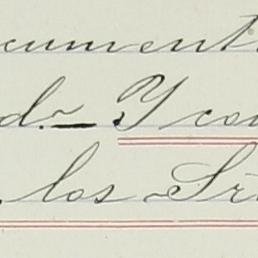 cument
d.r — Y con
los Sr